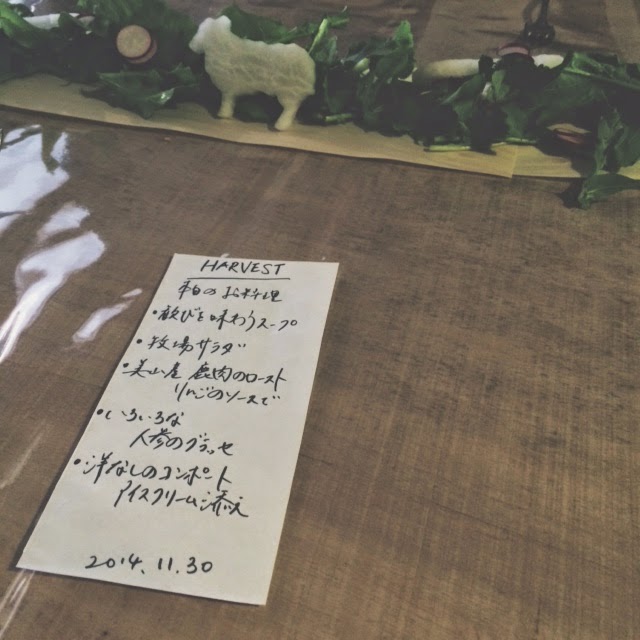 HARVEST
のお料理
・歓びを味わうスープ
・牧場サラダ
・美山産 鹿肉のロースト
りんごのソースで
・いろいろな
人参のグラッセ
・洋なしのコンポート
アイスクリーム添え
2014.11.30